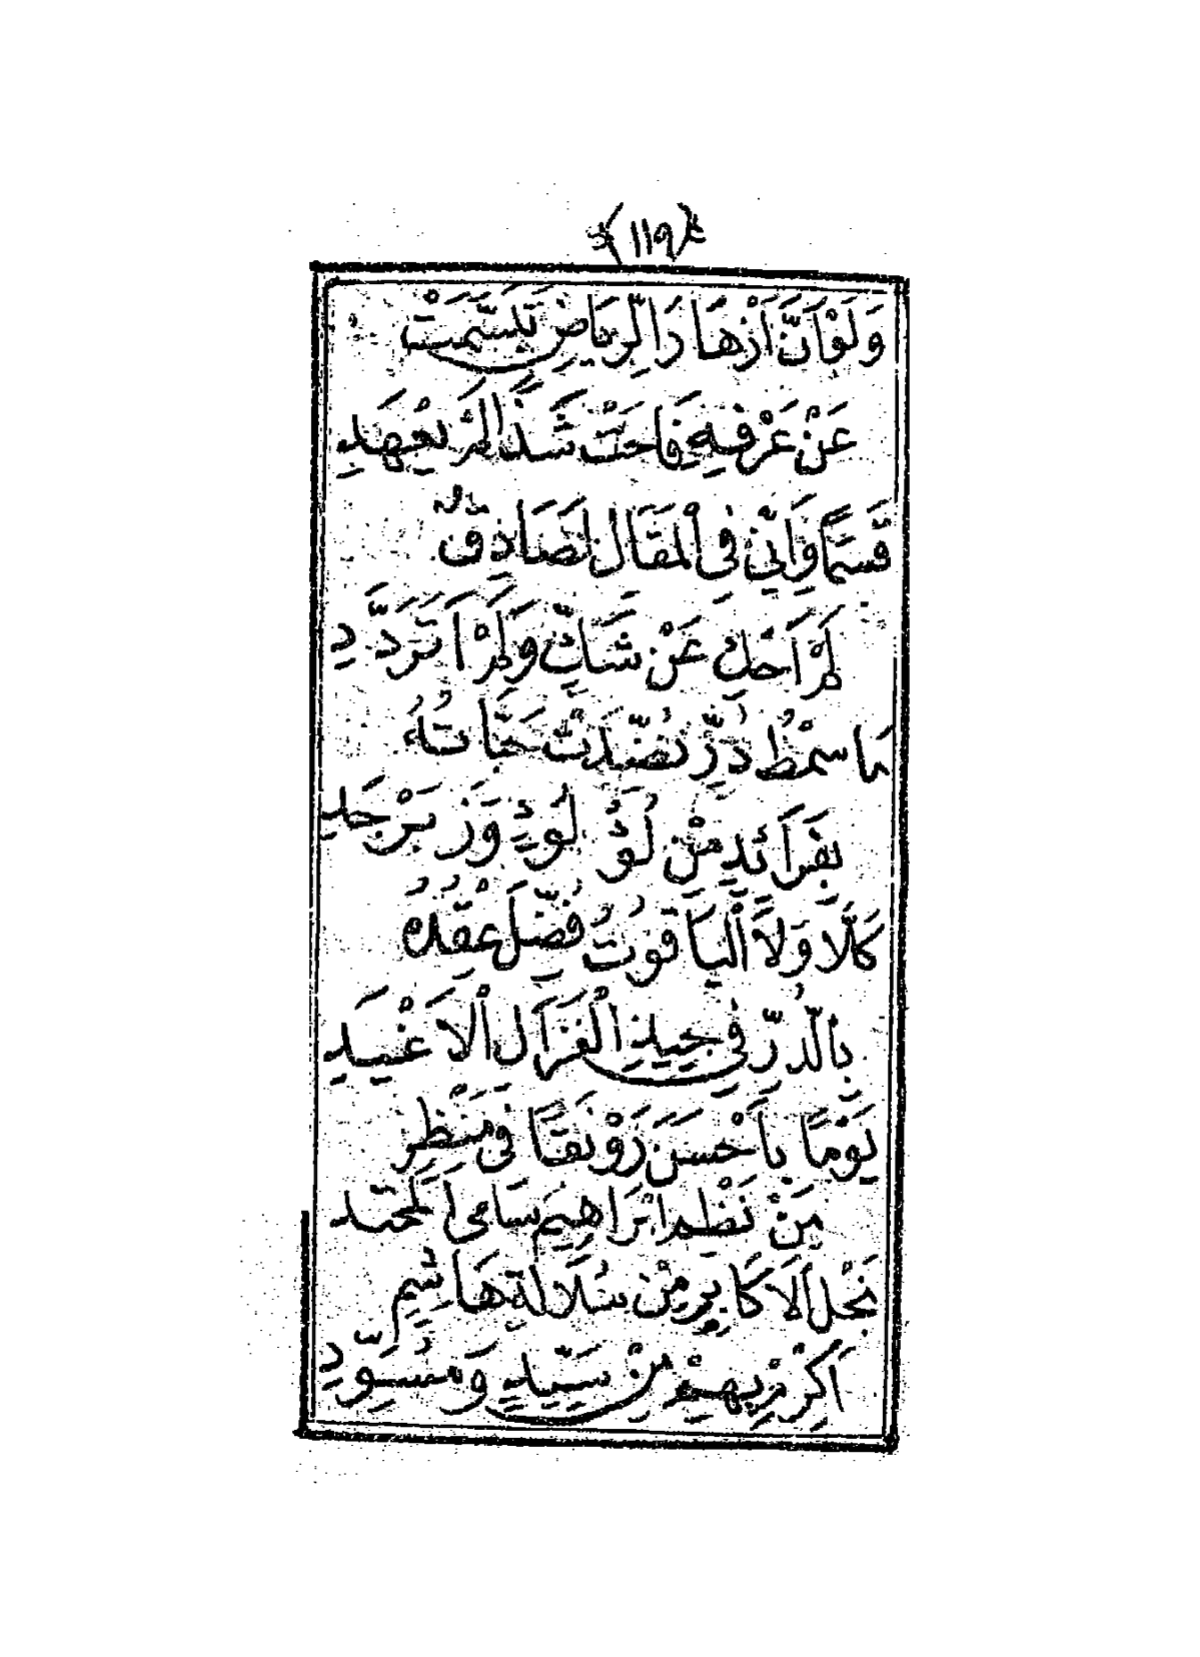 ﴿١١٩﴾
وَلَوْ اَنَّ اَزْهَارَ الرِّيَاضِ تَبَسَّمَتْ
عَنْ عَرْفِهِ فَاحَتْ شَذًا لَمْ يُعْهَدِ
قَسَمًا وَاِنِّي فِي الْمَقَالِ لَصَادِقٌ
لَمْ اَحْكِ عَنْ شَكٍّ وَلَمْ اَتَرَدَّدِ
مَا سِمْطُ دُرٍّ نُضِّدَتْ حَبَّاتُهُ
بِفَرَائِدٍ مِنْ لُؤْلُوءٍ وَزَبَرْجَدِ
كَلَّا وَلَا الْيَاقُوتُ فُصِّلَ عِقْدُهُ
بِالدُّرِّ فِي جِيدِ الْغَزَالِ الْاَغْيَدِ
يَوْمًا بِاَحْسَنَ رَوْنَقًا فِي مَنْظَرٍ
مِنْ نَظْمِ اِبْرَاهِيمَ سَامِي الْمَحْتَدِ
نَجْلِ الْاَكَابِرِ مِنْ سُلَالَةِ هَاشِمٍ
اَكْرِمْ بِهِمْ مِنْ سَيِّدٍ وَمُسَوَّدِ